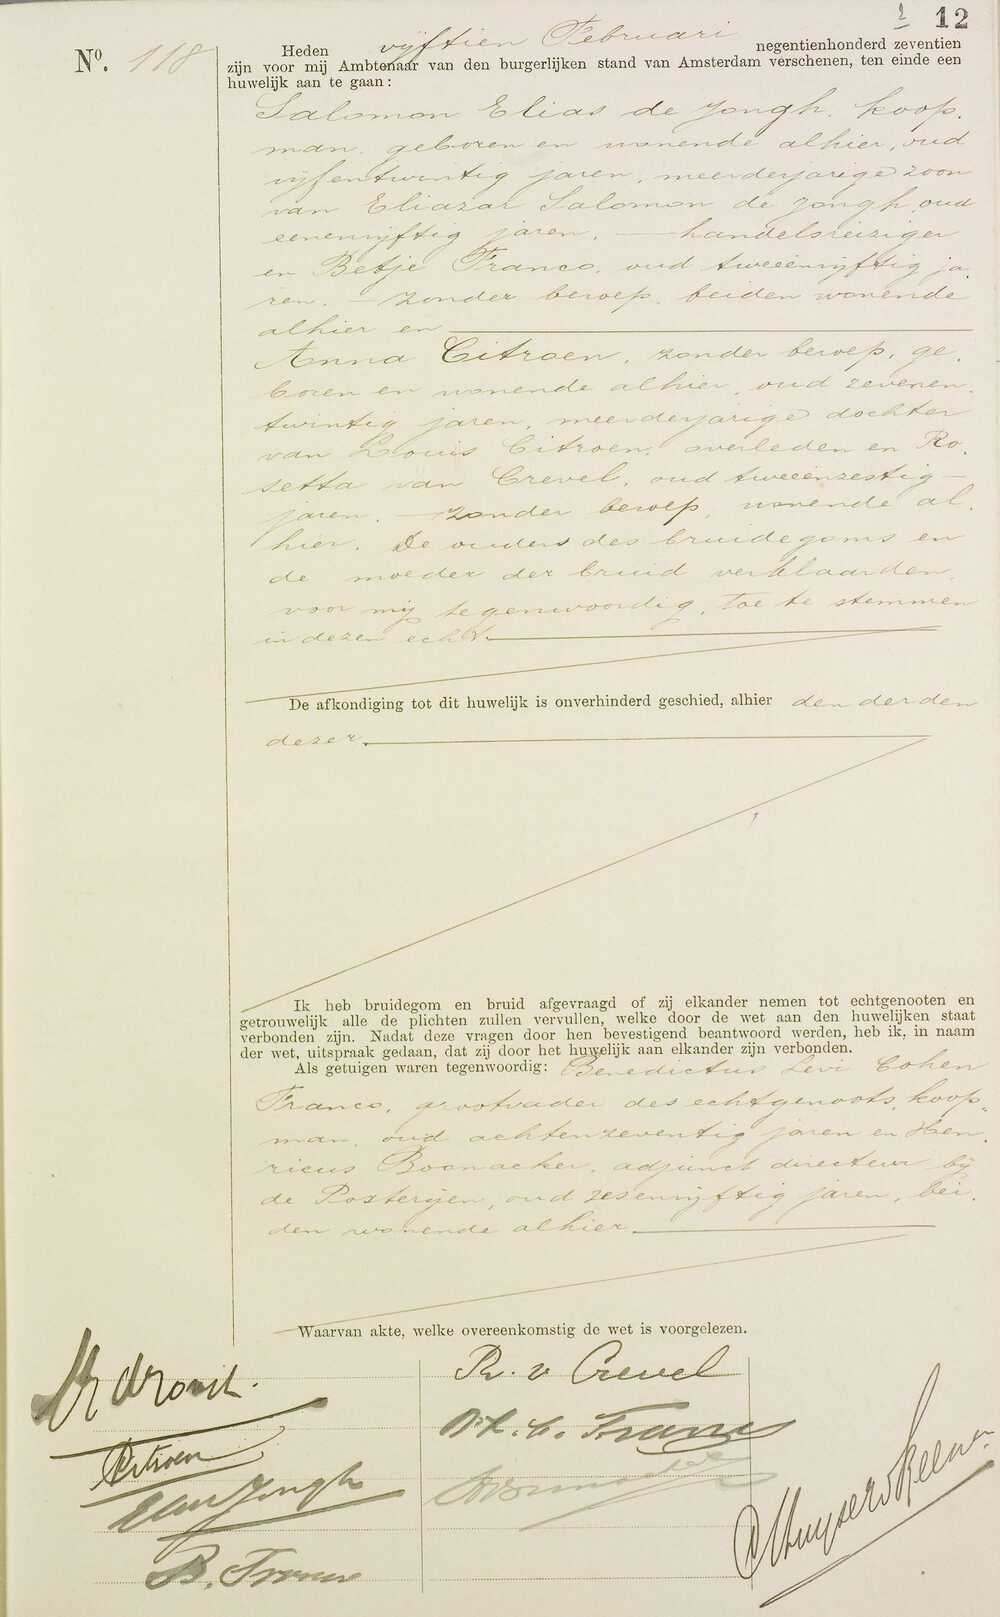 2 12
Nº. 118
Heden vijftien Februari negentienhonderd zeventien
zijn voor mij Ambtenaar van den burgerlijken stand van Amsterdam verschenen, ten einde een
huwelijk aan te gaan:
Salomon Elias de Jongh, koop-
man, geboren en wonende alhier, oud
vijfentwintig jaren, meerderjarige zoon
van Eliazar Salomon de Jongh, oud
eenenvijftig jaren, — handelsreiziger
en Betje Franco, oud tweeënvijftig ja-
ren, — zonder beroep, beiden wonende
alhier en
Anna Citroen, zonder beroep, ge-
boren en wonende alhier, oud zevenen-
twintig jaren, meerderjarige dochter
van Louis Citroen, overleden en Ro-
setta van Crevel, oud tweeënzestig —
jaren, — zonder beroep, wonende al-
hier. De ouders des bruidegoms en
de moeder der bruid verklaarden,
voor mij tegenwoordig, toe te stemmen
in dezen echt.
De afkondiging tot dit huwelijk is onverhinderd geschied, alhier den derden
dezer.
Ik heb bruidegom en bruid afgevraagd of zij elkander nemen tot echtgenooten en
getrouwelijk alle de plichten zullen vervullen, welke door de wet aan den huwelijken staat
verbonden zijn. Nadat deze vragen door hen bevestigend beantwoord werden, heb ik, in naam
der wet, uitspraak gedaan, dat zij door het huwelijk aan elkander zijn verbonden.
Als getuigen waren tegenwoordig: Benedictus Levi Cohen
Franco, grootvader des echtgenoots, koop-
man, oud achtenzeventig jaren en Hen-
ricus Boonacker, adjunct directeur bij
de Posterijen, oud zesenvijftig jaren, bei-
den wonende alhier.
Waarvan akte, welke overeenkomstig de wet is voorgelezen.
R. v. Crevel
Franco
ACitroen
de Jongh
B. Franco